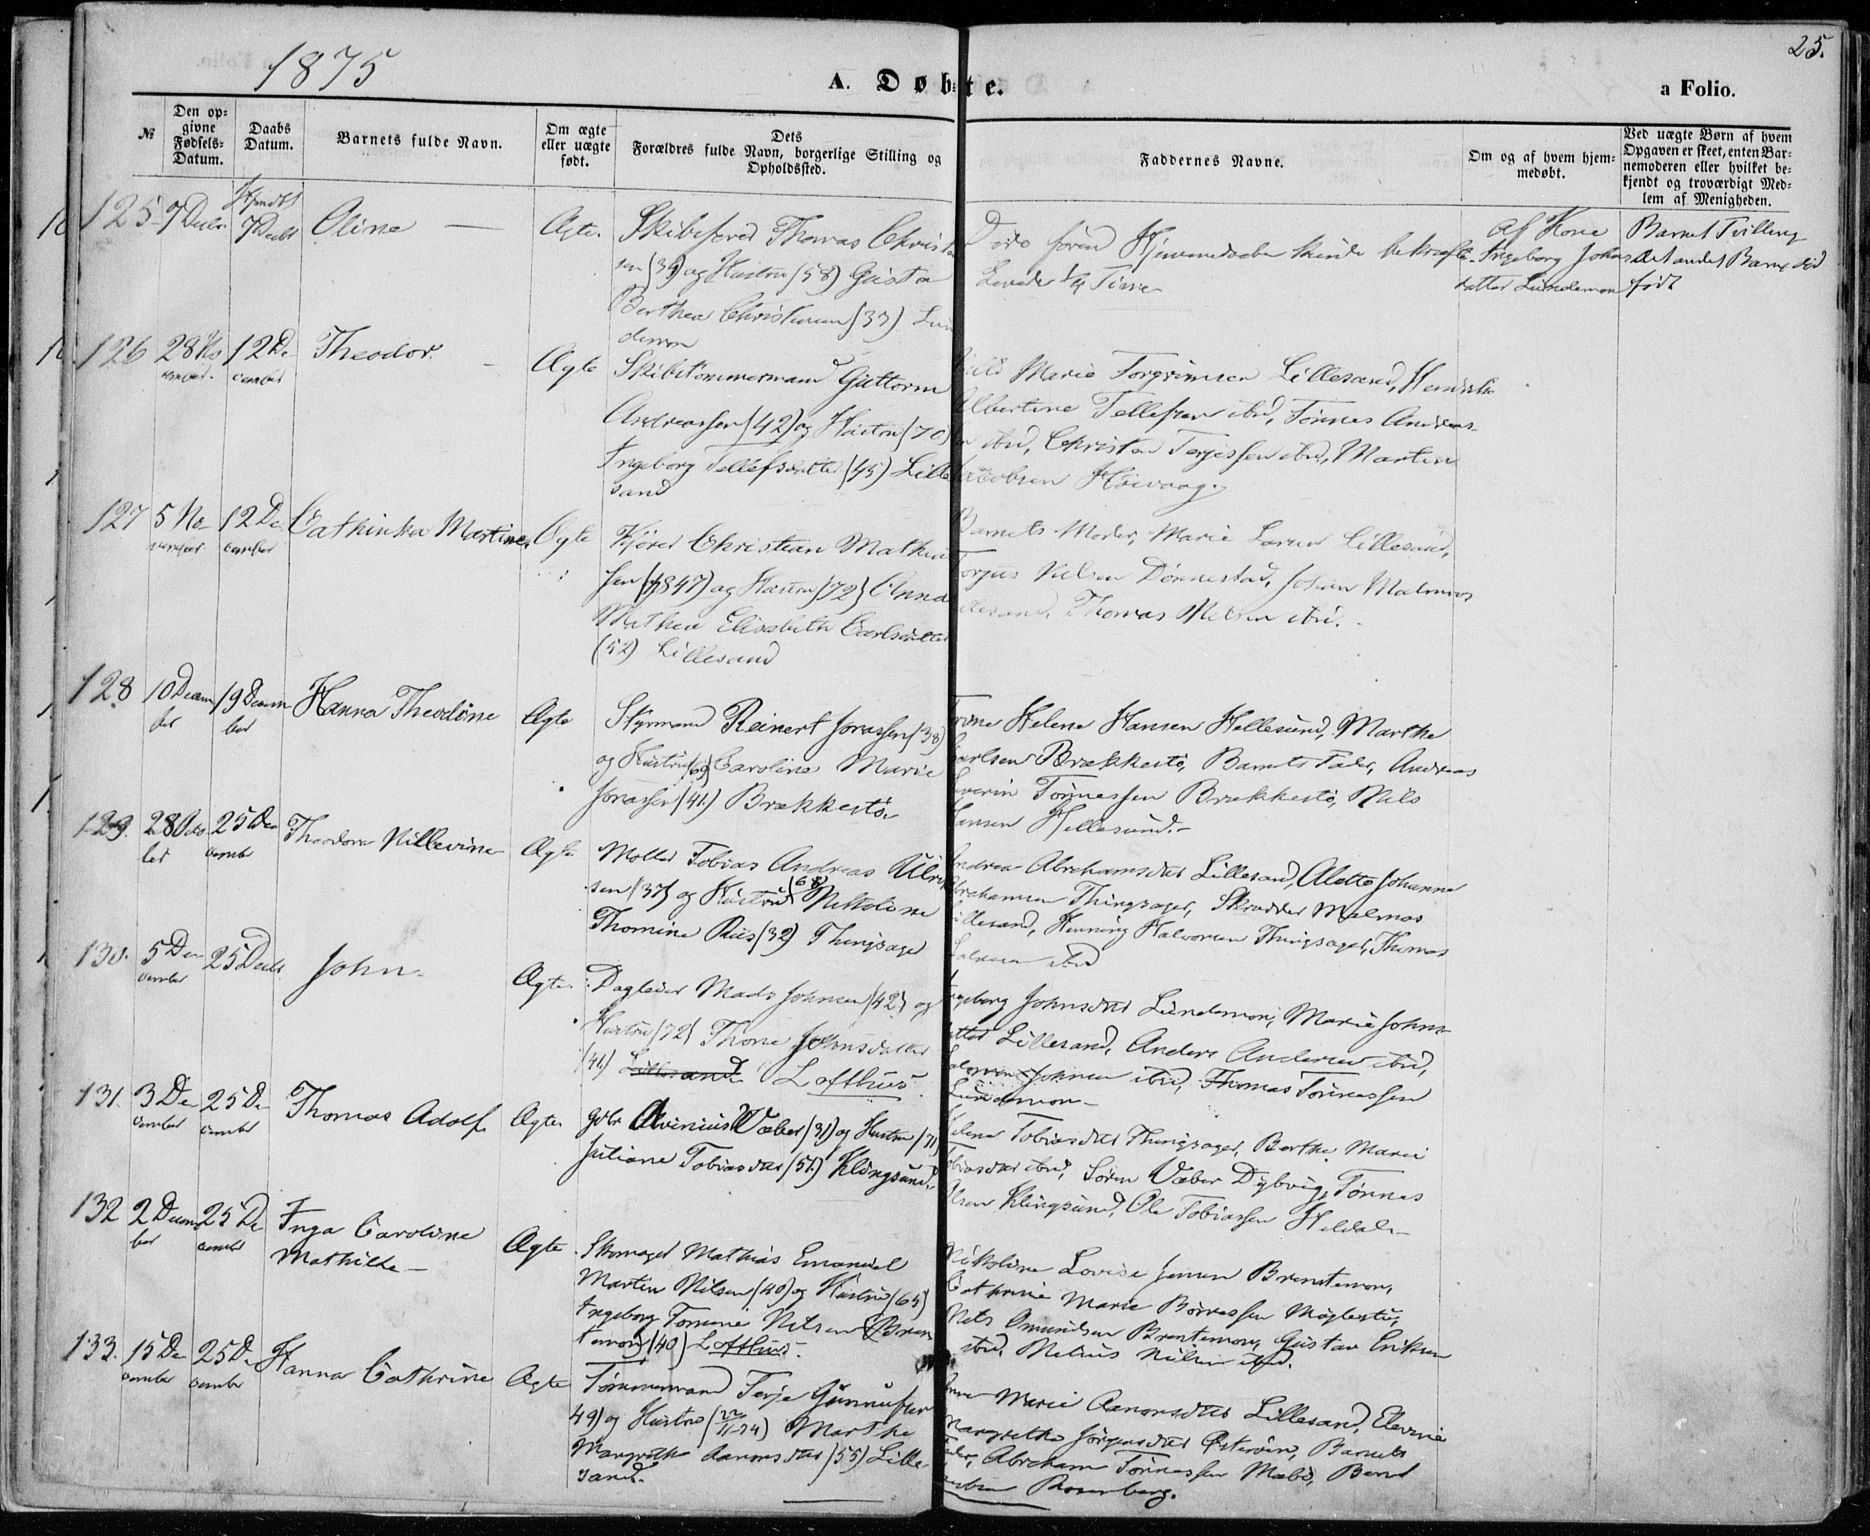 1875
25.
A. Døbte.
a Folio.
№
Den op-
givne
Fødsels-
Datum.
Daabs
Datum.
Barnets fulde Navn.
Om ægte
eller uægte
født.
Dets
Forældres fulde Navn, borgerlige Stilling og
Opholdssted.
Faddernes Navne.
Om og af hvem hjem-
medøbt.
Ved uægte Børn af hvem
Opgaven er skeet, enten Bar-
nemoderen eller hvilket be-
kjendt og troværdigt Med-
lem af Menigheden.
125 7 Decbr Hjmdbt 7 Decbr Oline — Ægte.
Skibsfører Thomas Christen
sen (39) og Hustru (58) Gusta
Berthea Christensen (33) Lun
demon
Døde førend Hjemmedaaben kunde bekræftes.
Levede 1/4 Time
Af Kone
Ingeborg Johns
datter Lundemon
Barnet Tvilling
det andet Barn død
født
126 28 No vember. 12 De cember Theodor. — Ægte
Skibstømmermand Guttorm
Andreassen (42) og Hustru (70)
Ingeborg Tellefsdatter (45) Lille
sand
Marie Torgrimsen Lillesand,
Albertine Tellefsen ibid, Tønnes Andreas-
ibid, Christen Terjessen ibid, Martin
Jacobsen Høivaag.
127 5 No vember 12 De cember Cathinka Martine. Ægte
Kjører Christian Mathia
sen (1847) og Hustru (72) Anna
Mathea Elisabeth Carlsdatter
(52) Lillesand
Barnets Moder, Marie Larsen Lillesand,
Torjus Nielsen Dønnestad, Johan Malmros
Lillesand, Thomas Nielsen ibid.
128 10 Decem ber 19 Decem ber Hanna Theodine Ægte
Styrmand Reinert Jonassen (38)
og Hustru (69) Caroline Marie
Jonassen (41.) Brækkestø.
Helene Hansen Hellesund, Marthe
Carlsen Brækkestø, Barnets Fader, Andreas
Severin Tønnessen Brækkestø, Nils
Hansen Hellesund.
129. 28 Octo ber 25 De cember Theodora Nillevine Ægte
Møller Tobias Andreas Ulrik
sen (37) og Hustru (68) Nikoline
Thomine Riis (32) Thingsager
Andrea Abrahamsdtr Lillesand, Alette Johanne
Abrahamsen Thingsager, Skrædder Malmros
Lillesand, Henning Halvorsen Thingsager, Thomas
ibid
130. 5 De cember 25 Decbr John. Ægte.
Dagleier Mads Johnsen (42) og
Hustru (72) Thone Johnsdatter
(41) Lillesand Lofthus.
Ingeborg Johnsdtr Lundemon, Marie Johns
datter Lillesand, Anders Andersen ibid,
Johnsen ibid, Thomas Tønnessen
Lundemon
131. 3 De cember 25 De cember Thomas Adolf Ægte
Gdbr Alvinius Væber (31) og Hustru (71)
Juliane Tobiasdtr (51.) Klingsund.
Helene Tobiasdtr Thingsager, Berthe Marie
Tobiasdtr ibid, Søren Væber Dybvig, Tønnes
Olsen Klingsund, Ole Tobiassen Heldal
132 2 Decem ber 25 De cember Inga Caroline
Mathilde Ægte
Skomager Mathias Emanuel
Martin Nilsen (40) og Hustru (65)
Ingeborg Tomine Nilsen (Bren
temon) (40) Lofthus.
Nikoline Lovise Jensen Brentemon,
Cathrine Marie Børressen Møglestu,
Nils Omundsen Brentemon, Gustav Eriksen
ibid, Melius Nilsen ibid.
133. 15 De cember 25 De cember Hanna Cathrine Ægte
Tømmermand Terje Gunnufsen
49) og Hustru (22/11-74) Marthe
Margrethe Aanonsdtr (55) Lille
sand.
Marie Aanonsdtr Lillesand, Elevine
Margrethe Jørgensdtr Østerøen, Barnets
Fader, Abraham Tønnessen Mæbø, Bernt
Rosenberg.